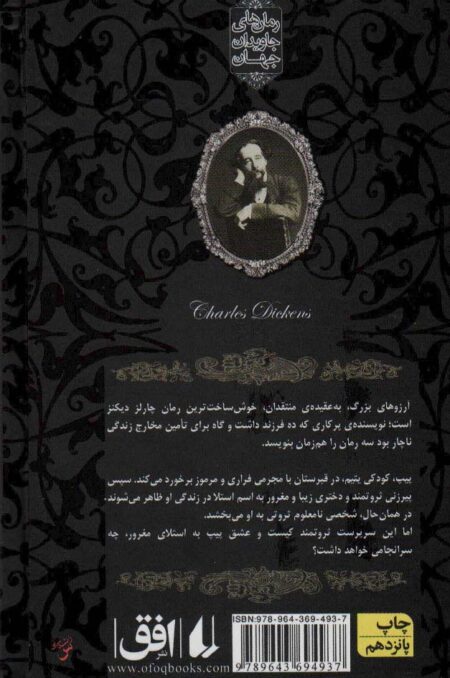 رمان‌های
جاویدان
جهان
Charles Dickens
آرزوهای بزرگ، به‌عقیده‌ی منتقدان، خوش‌ساخت‌ترین رمان چارلز دیکنز
است؛ نویسنده‌ی پرکاری که ده فرزند داشت و گاه برای تأمین مخارج زندگی
ناچار بود سه رمان را هم‌زمان بنویسد.
پیپ، کودکی یتیم، در قبرستان با مجرمی فراری و مرموز برخورد می‌کند. سپس
پیرزنی ثروتمند و دختری زیبا و مغرور به اسم استلا در زندگی او ظاهر می‌شوند.
در همان‌حال، شخصی نامعلوم ثروتی به او می‌بخشد.
اما این سرپرست ثروتمند کیست و عشق پیپ به استلای مغرور، چه
سرانجامی خواهد داشت؟
چاپ
پانزدهم
ISBN: 978-964-369-493-7
9 789643 694937
نشر
افق
www.ofoqbooks.com